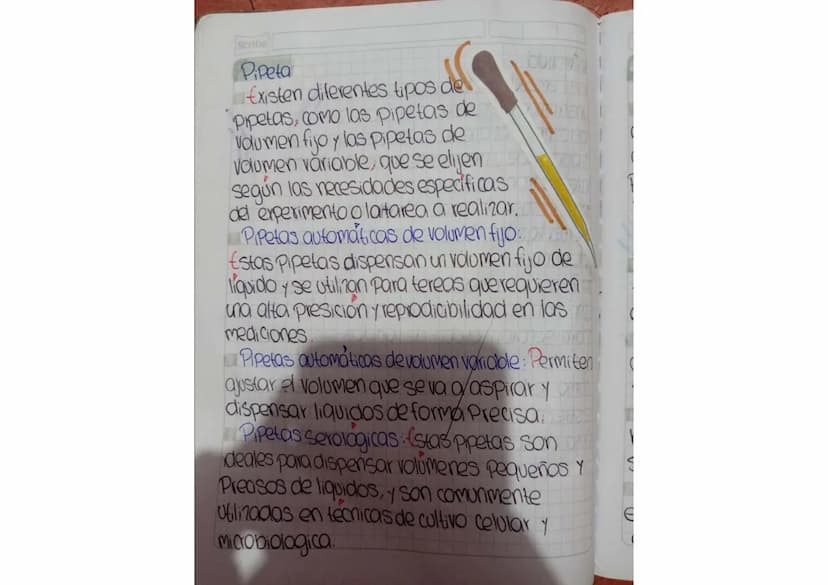 Scribe
Pipeta
Existen diferentes tipos de
pipetas, como las pipetas de
volumen fijo y las pipetas de
volumen variable, que se elijen
según las necesidades específicas
del experimento o la tarea a realizar.
Pipetas automáticas de volumen fijo:
Estas pipetas dispensan un volumen fijo de
líquido y se utilizan para tereas que requieren
una alta presición y reprodicibilidad en las
mediciones.
Pipetas automáticas de volumen variable: Permiten
ajustar el volumen que se va a aspirar y
dispensar liquidos de forma precisa.
Pipetas serológicas: Estas pipetas son
ideales para dispensar volúmenes pequeños y
Precisos de líquidos, y son comunmente
utilizadas en técnicas de cultivo celular y
microbiologica.